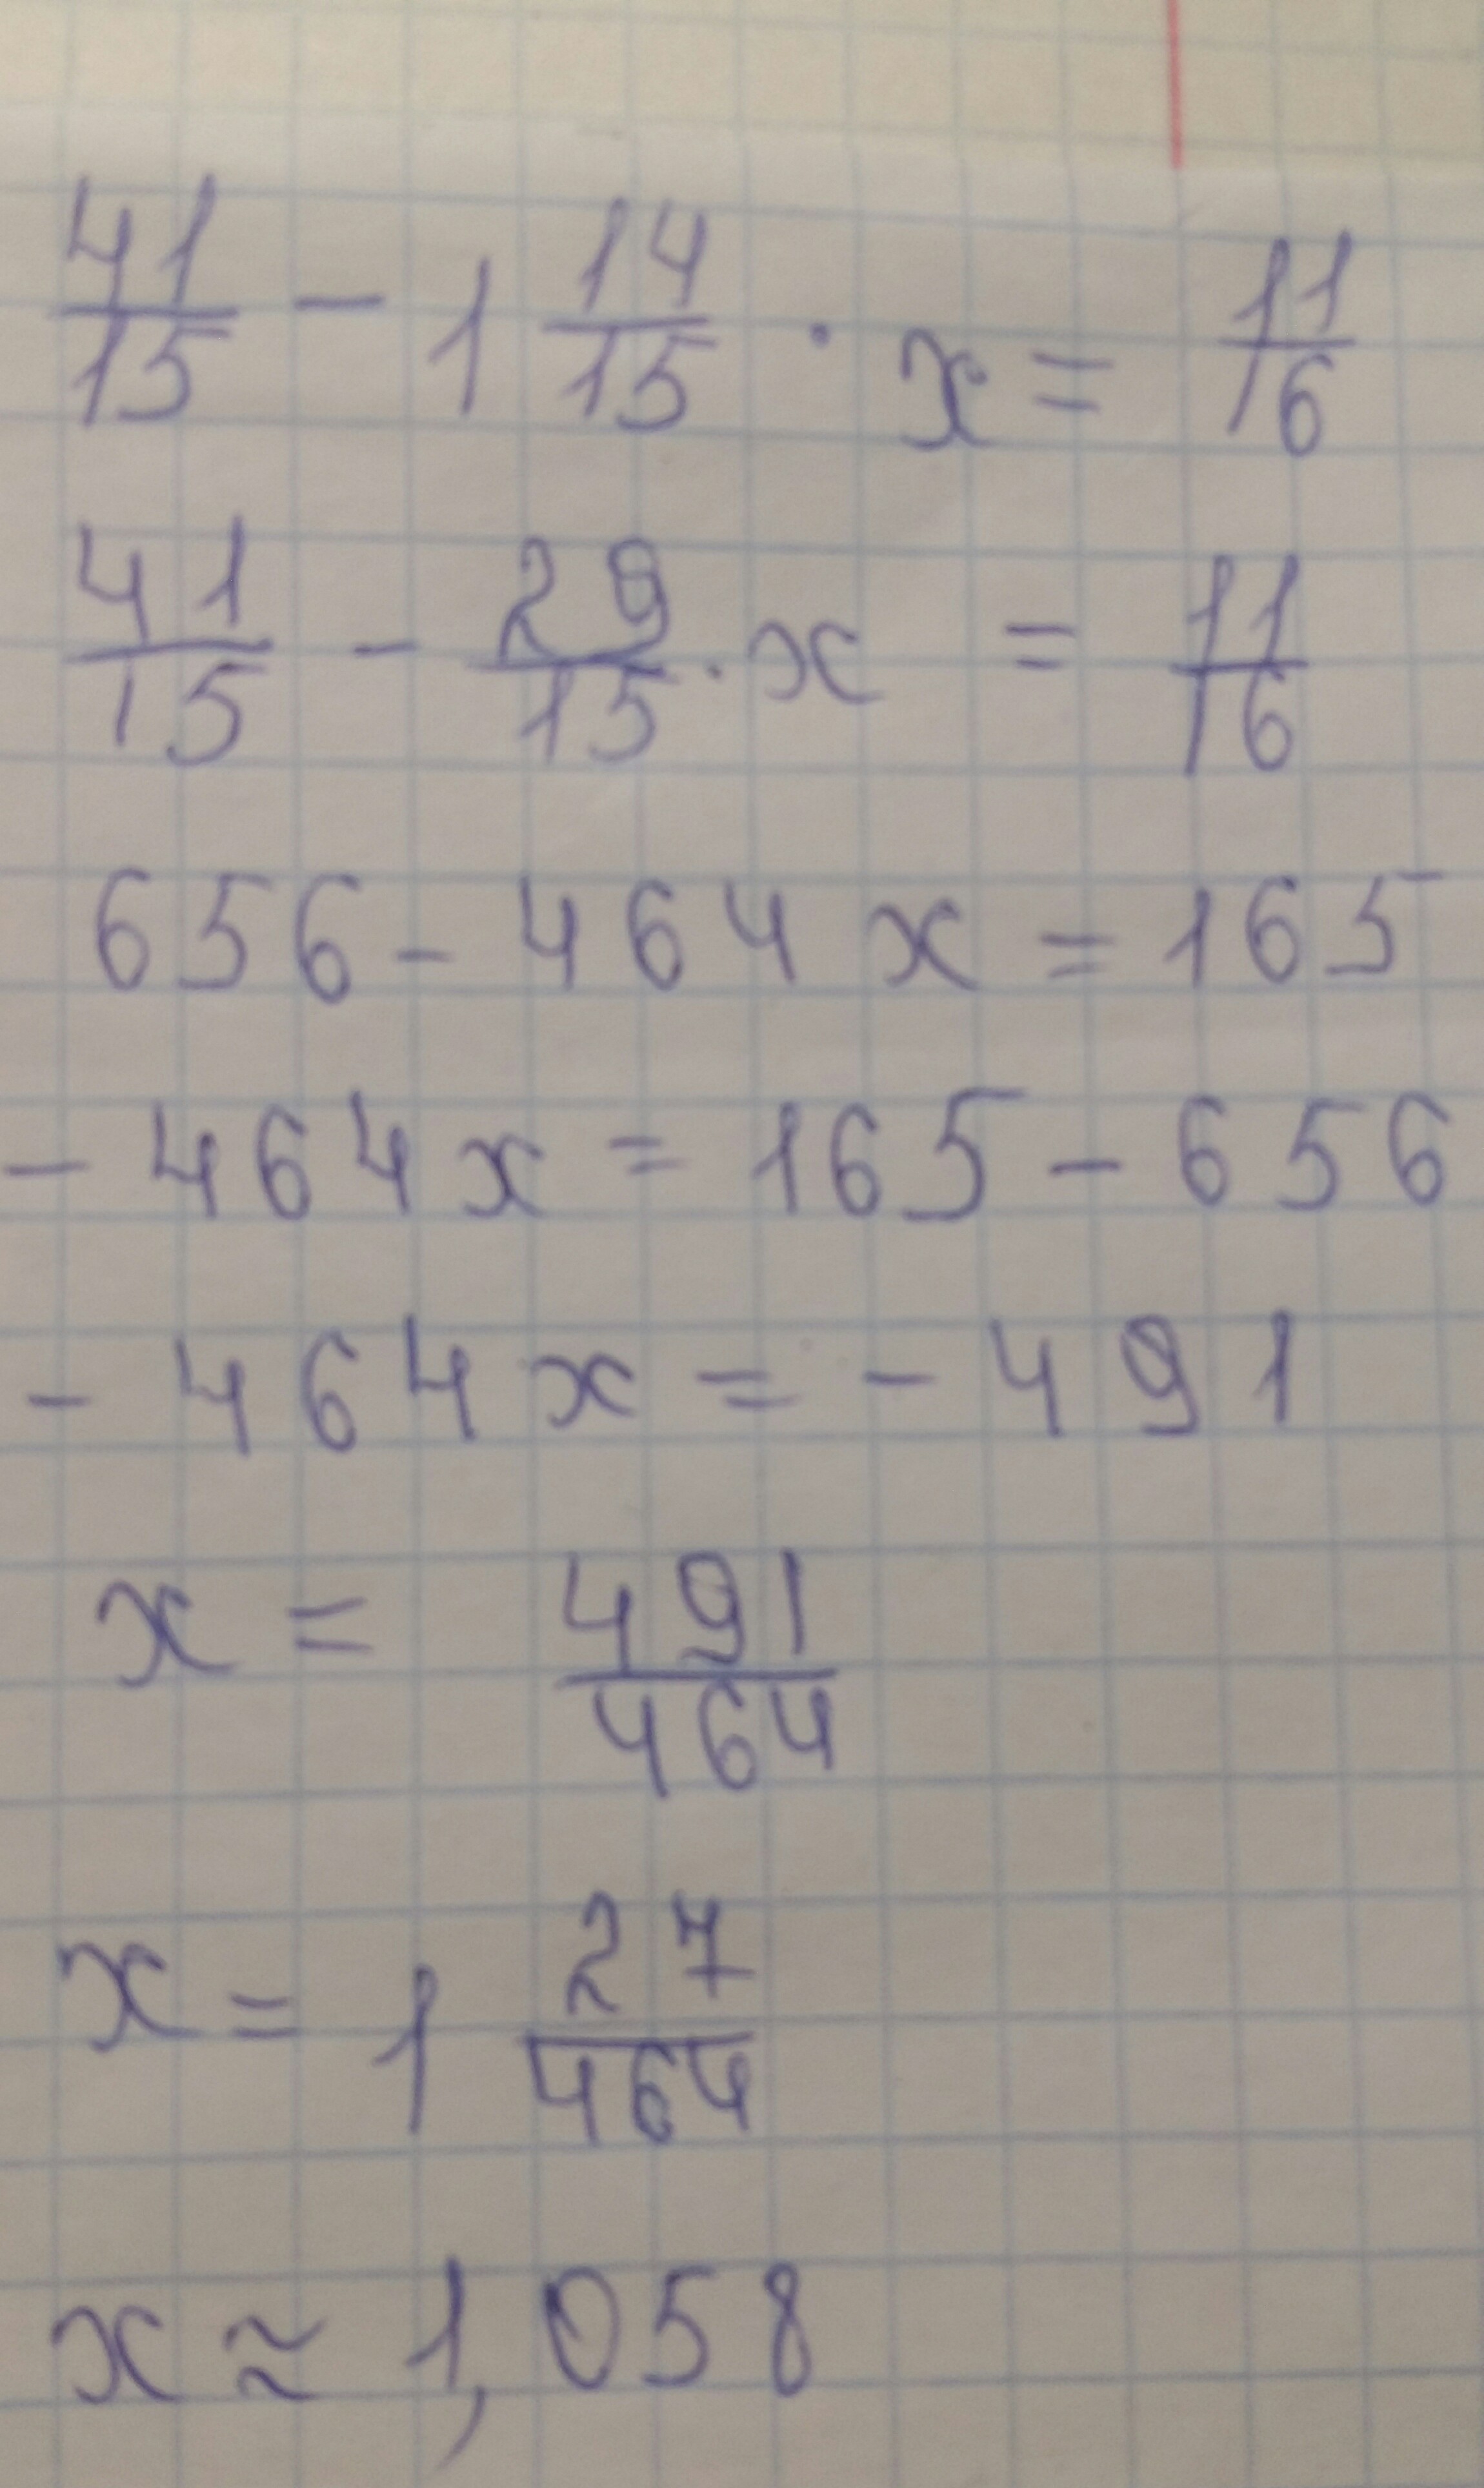 41/15 - 1 14/15 · x = 11/16
41/15 - 29/15 · x = 11/16
656 - 464x = 165
- 464x = 165 - 656
- 464x = - 491
x = 491/464
x = 1 27/464
x ≈ 1,058